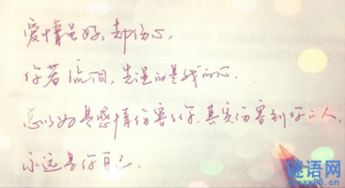 爱情虽好，却伤心，
你若流泪，先湿的是我的心。
总以为是感情伤害了你，其实伤害到你的人，
永远是你自己.
谜语网